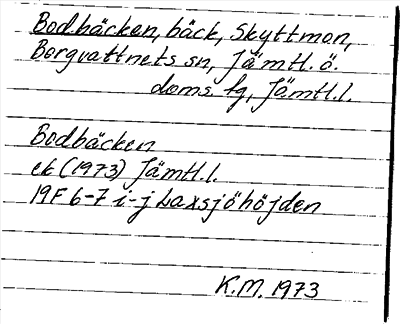 Bodbäcken, bäck, Skyttmon,
Borgvattnets sn, Jämtl. ö.
doms. fg, Jämtl.l.
Bodbäcken
ek (1973) Jämtl.l.
19F 6-7 i-j Laxsjöhöjden
K.M. 1973